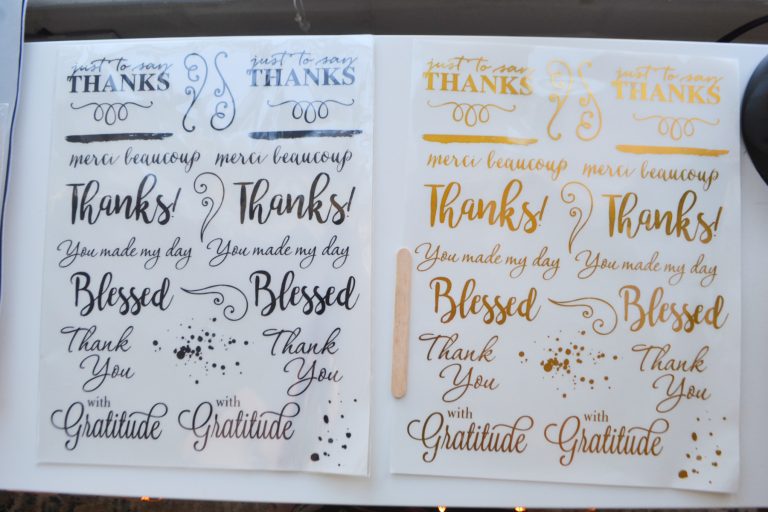 just to say
THANKS
just to say
THANKS
merci beaucoup
merci beaucoup
Thanks!
Thanks!
You made my day
You made my day
Blessed
Blessed
Thank
You
Thank
You
with
Gratitude
with
Gratitude
just to say
THANKS
just to say
THANKS
merci beaucoup
merci beaucoup
Thanks!
Thanks!
You made my day
You made my day
Blessed
Blessed
Thank
You
Thank
You
with
Gratitude
with
Gratitude